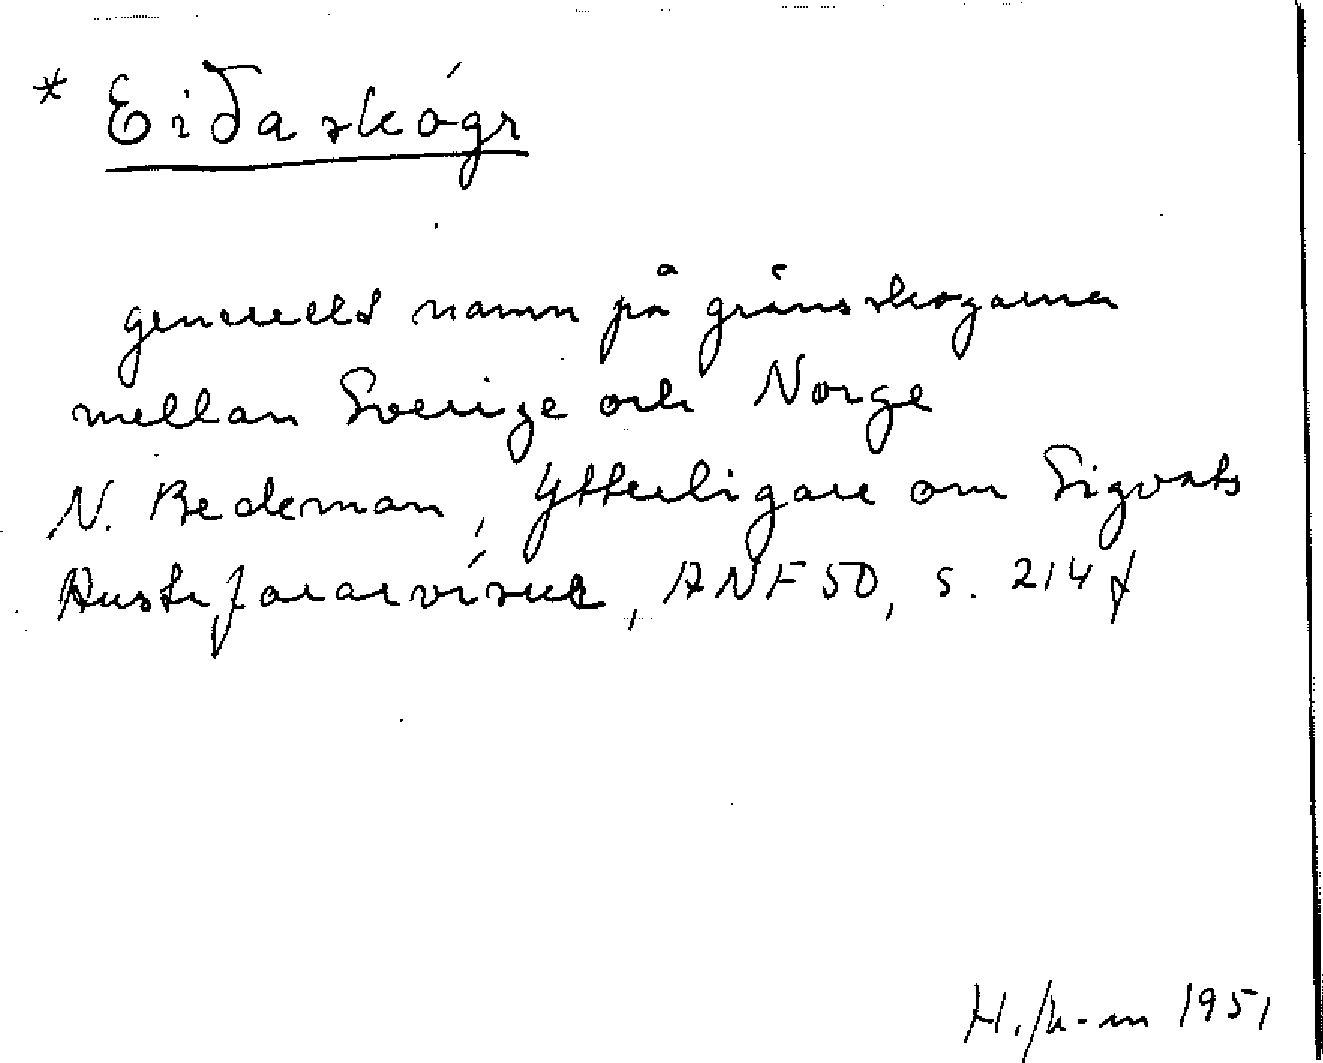 * Eiðaskógr
generellt namn på gränsskogarna
mellan Sverige och Norge
N. Beckman, Ytterligare om Sigvats
Austrfararvísur, ANF 50, s. 214 f
1951